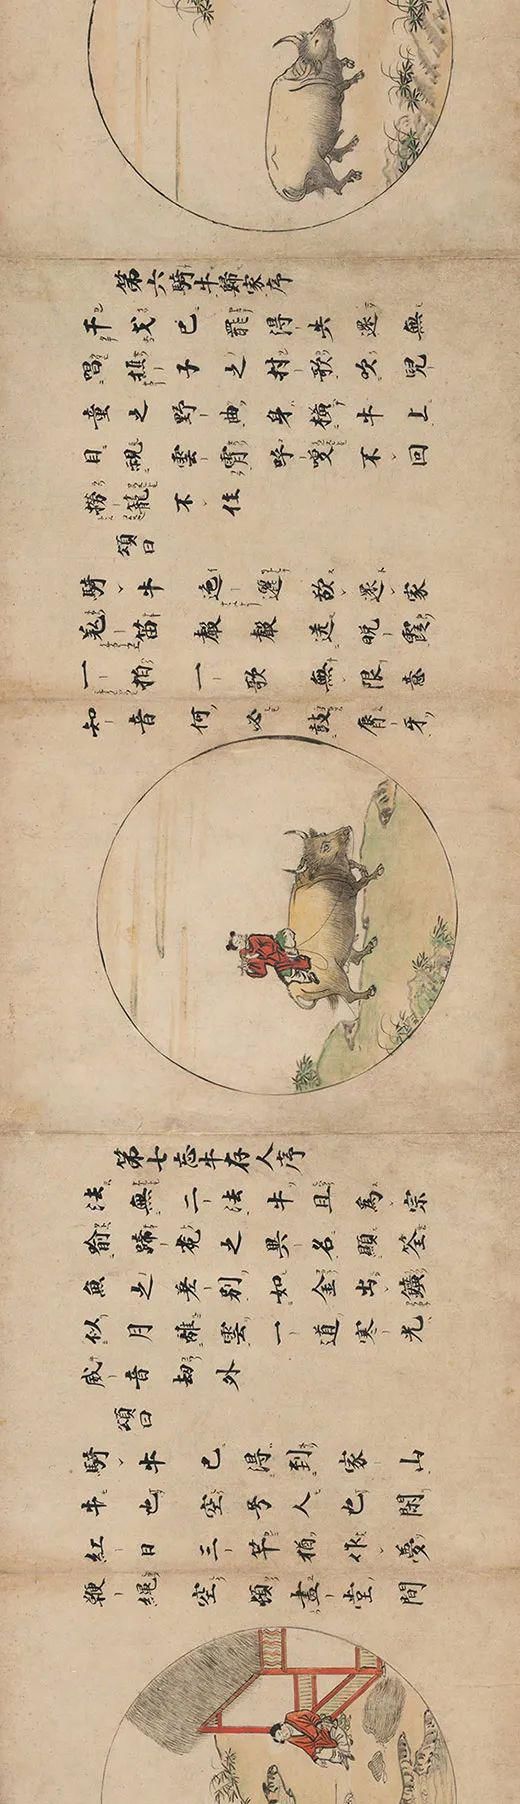 第六騎牛歸家序
干戈已罷得失還無
唱樵子之村歌吹兒
童之野曲身橫牛上
目視雲霄呼喚不回
撈籠不住
頌曰
騎牛迤邐欲還家
羗笛聲聲送晩霞
一拍一歌無限意
知音何必鼓脣牙
第七忘牛存人序
法無二法牛且為宗
喻蹄兎之異名顯筌
魚之差別如金出鑛
似月離雲一道寒光
威音劫外
頌曰
騎牛已得到家山
牛也空兮人也閑
紅日三竿猶作夢
鞭繩空頓畫堂間